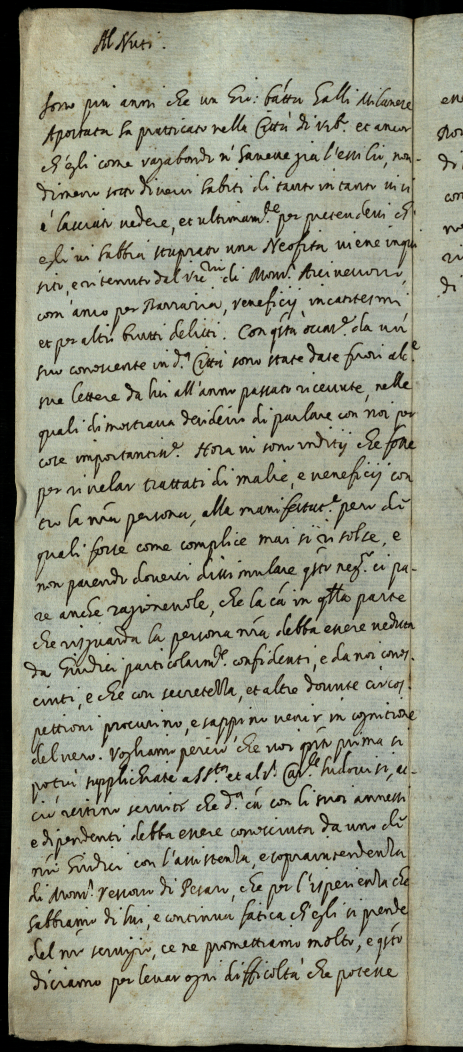 Al Nuti.
Sono più anni che un Gio: batta Galli Milanese
Apostata ha pratticato nella Città di Urb.o et ancor
ch'egli come vagabondo n'havesse già l'essilio, non-
dimeno sotto diversi habiti di tanto in tanto vi si
è lasciato vedere, et ultimam.te per pretendersi ch'
egli vi habbia stuprato una Neofita viene inqui
sito, e ritenuto dal Vic.rio di Mons.r Arcivescovo,
com'anco per               , veneficij incantesimi
et per altri brutti delitti. Con q.sta occas.e da un
suo conoscente in d.a Città sono state date fuori alc.e
sue lettere da lui all'anno passato ricevute, nelle
quali dimostrava desiderio di parlare con noi per
cose importantiss.e Hora vi sono inditij che fosse
per rivelar trattati di malie, e veneficij con
tro la n.ra persona, alla manifestat.e però de
quali forse come complice mai si risolse, e
non parendo doversi dissimulare q.sto neg.o ci pa-
re anche ragionevole, che la cã in q.lla parte
che risguarda la persona n.ra debba essere veduta
da Giudici particolarm.te confidenti, e da noi conos-
ciuti, e che con secretezza, et altre dovute circos-
pettioni procurino, e sappino venir in cognitione
del vero. Vogliamo perciò che voi q.to prima si
potrà supplichiate a S. S.tà et al S.r Car.le Ludovisi, ac-
ciò restino serviti che d.a cã con li suoi annessi
e dipendenti debba essere conosciuta da uno de
n.ri Giudici con l'assistenza, e sopraintendenza
di Mons.r Vescovo di Pesaro, che per l'esperienza che
habbiamo di lui, e continua fatica ch'egli si prende
del n.ro servigio, ce ne promettiamo molto, e q.sto
diciamo per levar ogni difficoltà che potesse